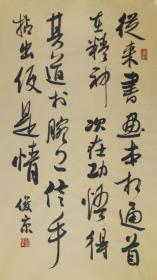 從来書画本相通首
在精神次在功悟得
其道於腕上信手
拈出便是情
俊京